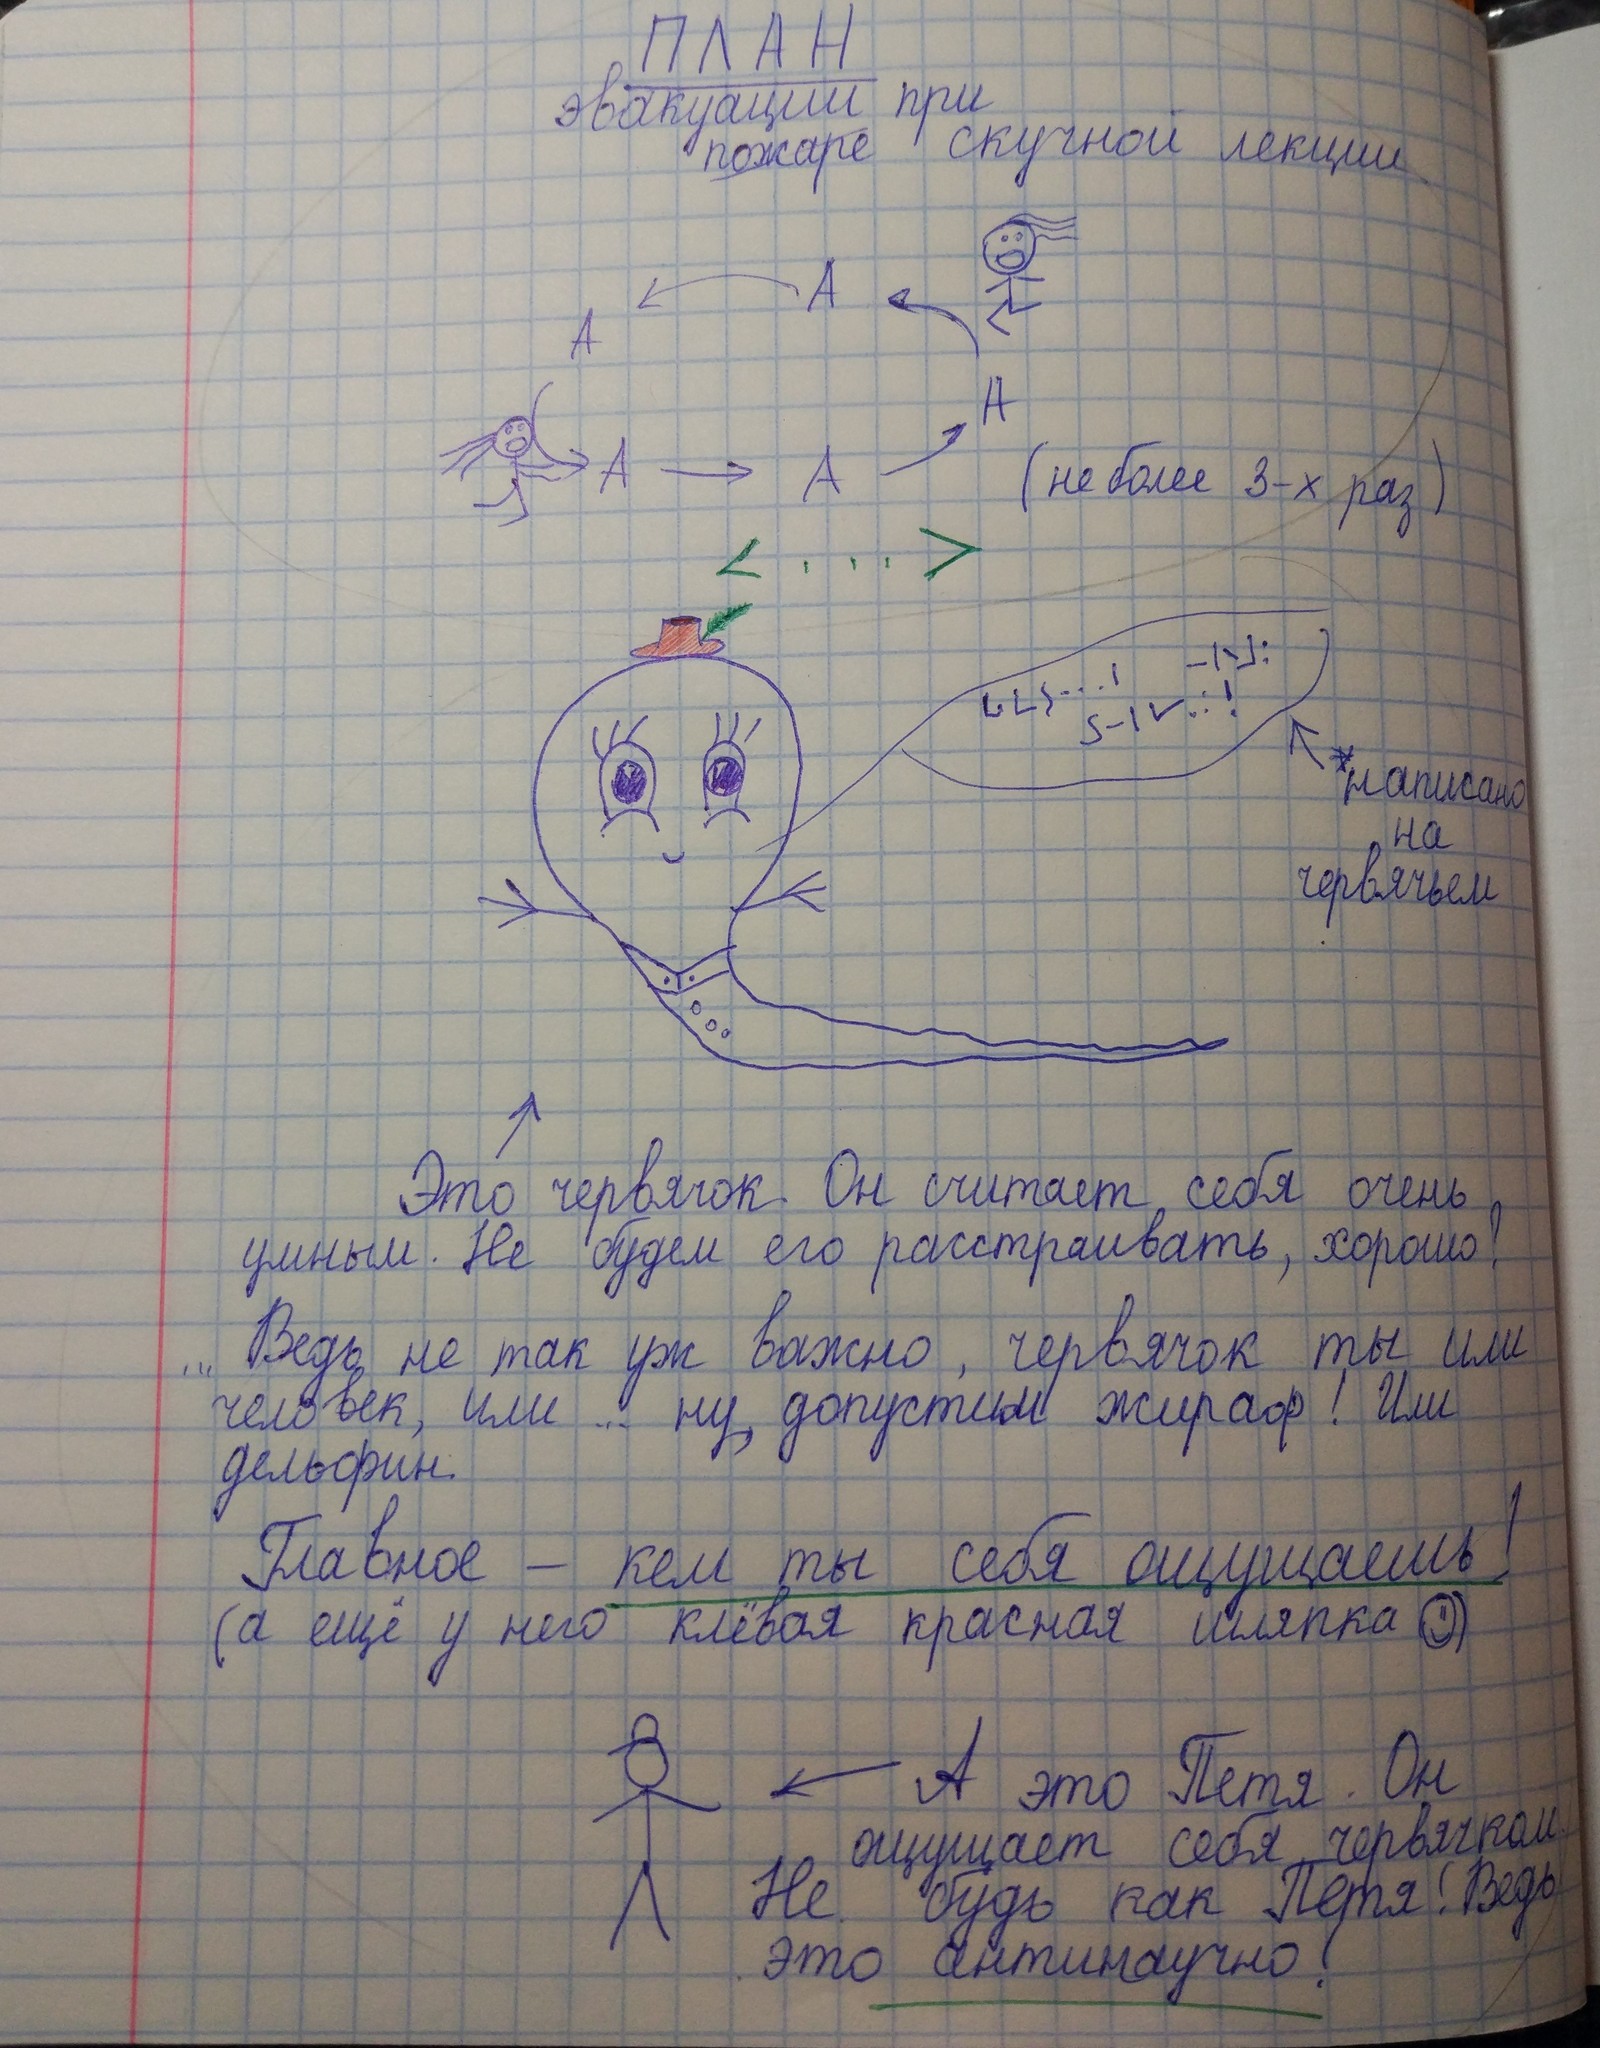 ПЛАН
эвакуации при
пожаре скучной лекции
А
А
А
А А
(не более 3-х раз)
<....>
*написано
на
червячьем
Это червячок. Он считает себя очень
умным. Не будем его расстраивать, хорошо?
... Ведь не так уж важно, червячок ты или
человек, или ... ну, допустим жираф! Или
дельфин.
Главное – кем ты себя ощущаешь!
(а ещё у него клёвая красная шляпка
А это Петя. Он
ощущает себя червячком.
Не будь как Петя! Ведь
это антинаучно!